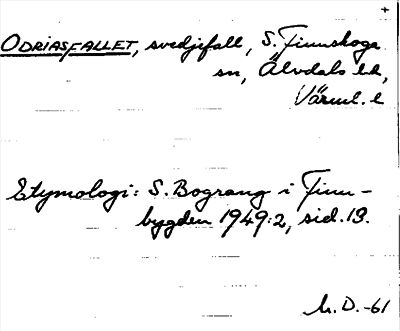 +
ODRIASFALLET, svedjefall, S. Finnskoga
sn, Älvdals hd,
Värml. l
Etymologi: S. Bograng i Finn-
bygden 1949:2, sid. 13.
M. D. -61